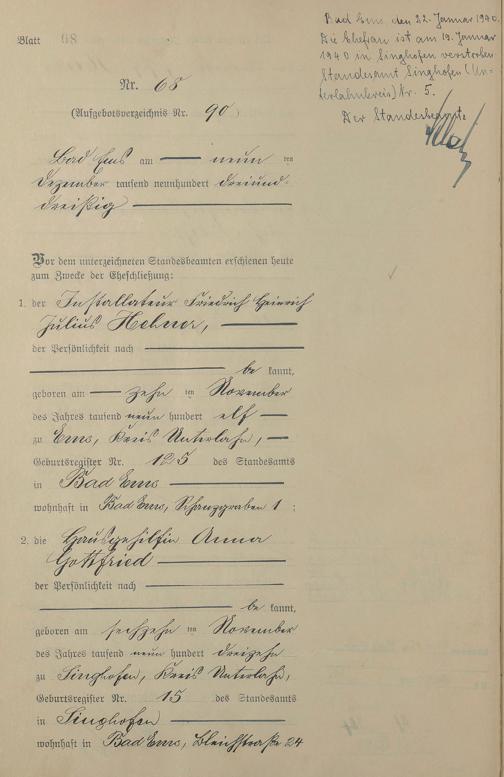 Bad Ems, den 22. Januar 1940.
Die Ehefrau ist am 19. Januar
1940 in Singhofen verstorben
Standesamt Singhofen (Un-
terlahnkreis) Nr. 5.
Der Standesbeamte
Blatt
Nr. 68
(Aufgebotsverzeichnis Nr. 90)
Bad Ems am neun ten
Dezember tausend neunhundert dreiund-
dreißig
Vor dem unterzeichneten Standesbeamten erschienen heute
zum Zwecke der Eheschließung:
1. der Installateur Friedrich Heinrich
Julius Hehner,
der Persönlichkeit nach
be kannt,
geboren am zehn ten November
des Jahres tausend neun hundert elf
zu Ems, Kreis Unterlahn,
Geburtsregister Nr. 125 des Standesamts
in Bad Ems
wohnhaft in Bad Ems, Schanzgraben 1;
2. die Hausgehilfin Anna
Gottfried
der Persönlichkeit nach
be kannt,
geboren am sechzehn ten November
des Jahres tausend neun hundert dreizehn
zu Singhofen, Kreis Unterlahn,
Geburtsregister Nr. 15 des Standesamts
in Singhofen
wohnhaft in Bad Ems, Bleichstraße 24